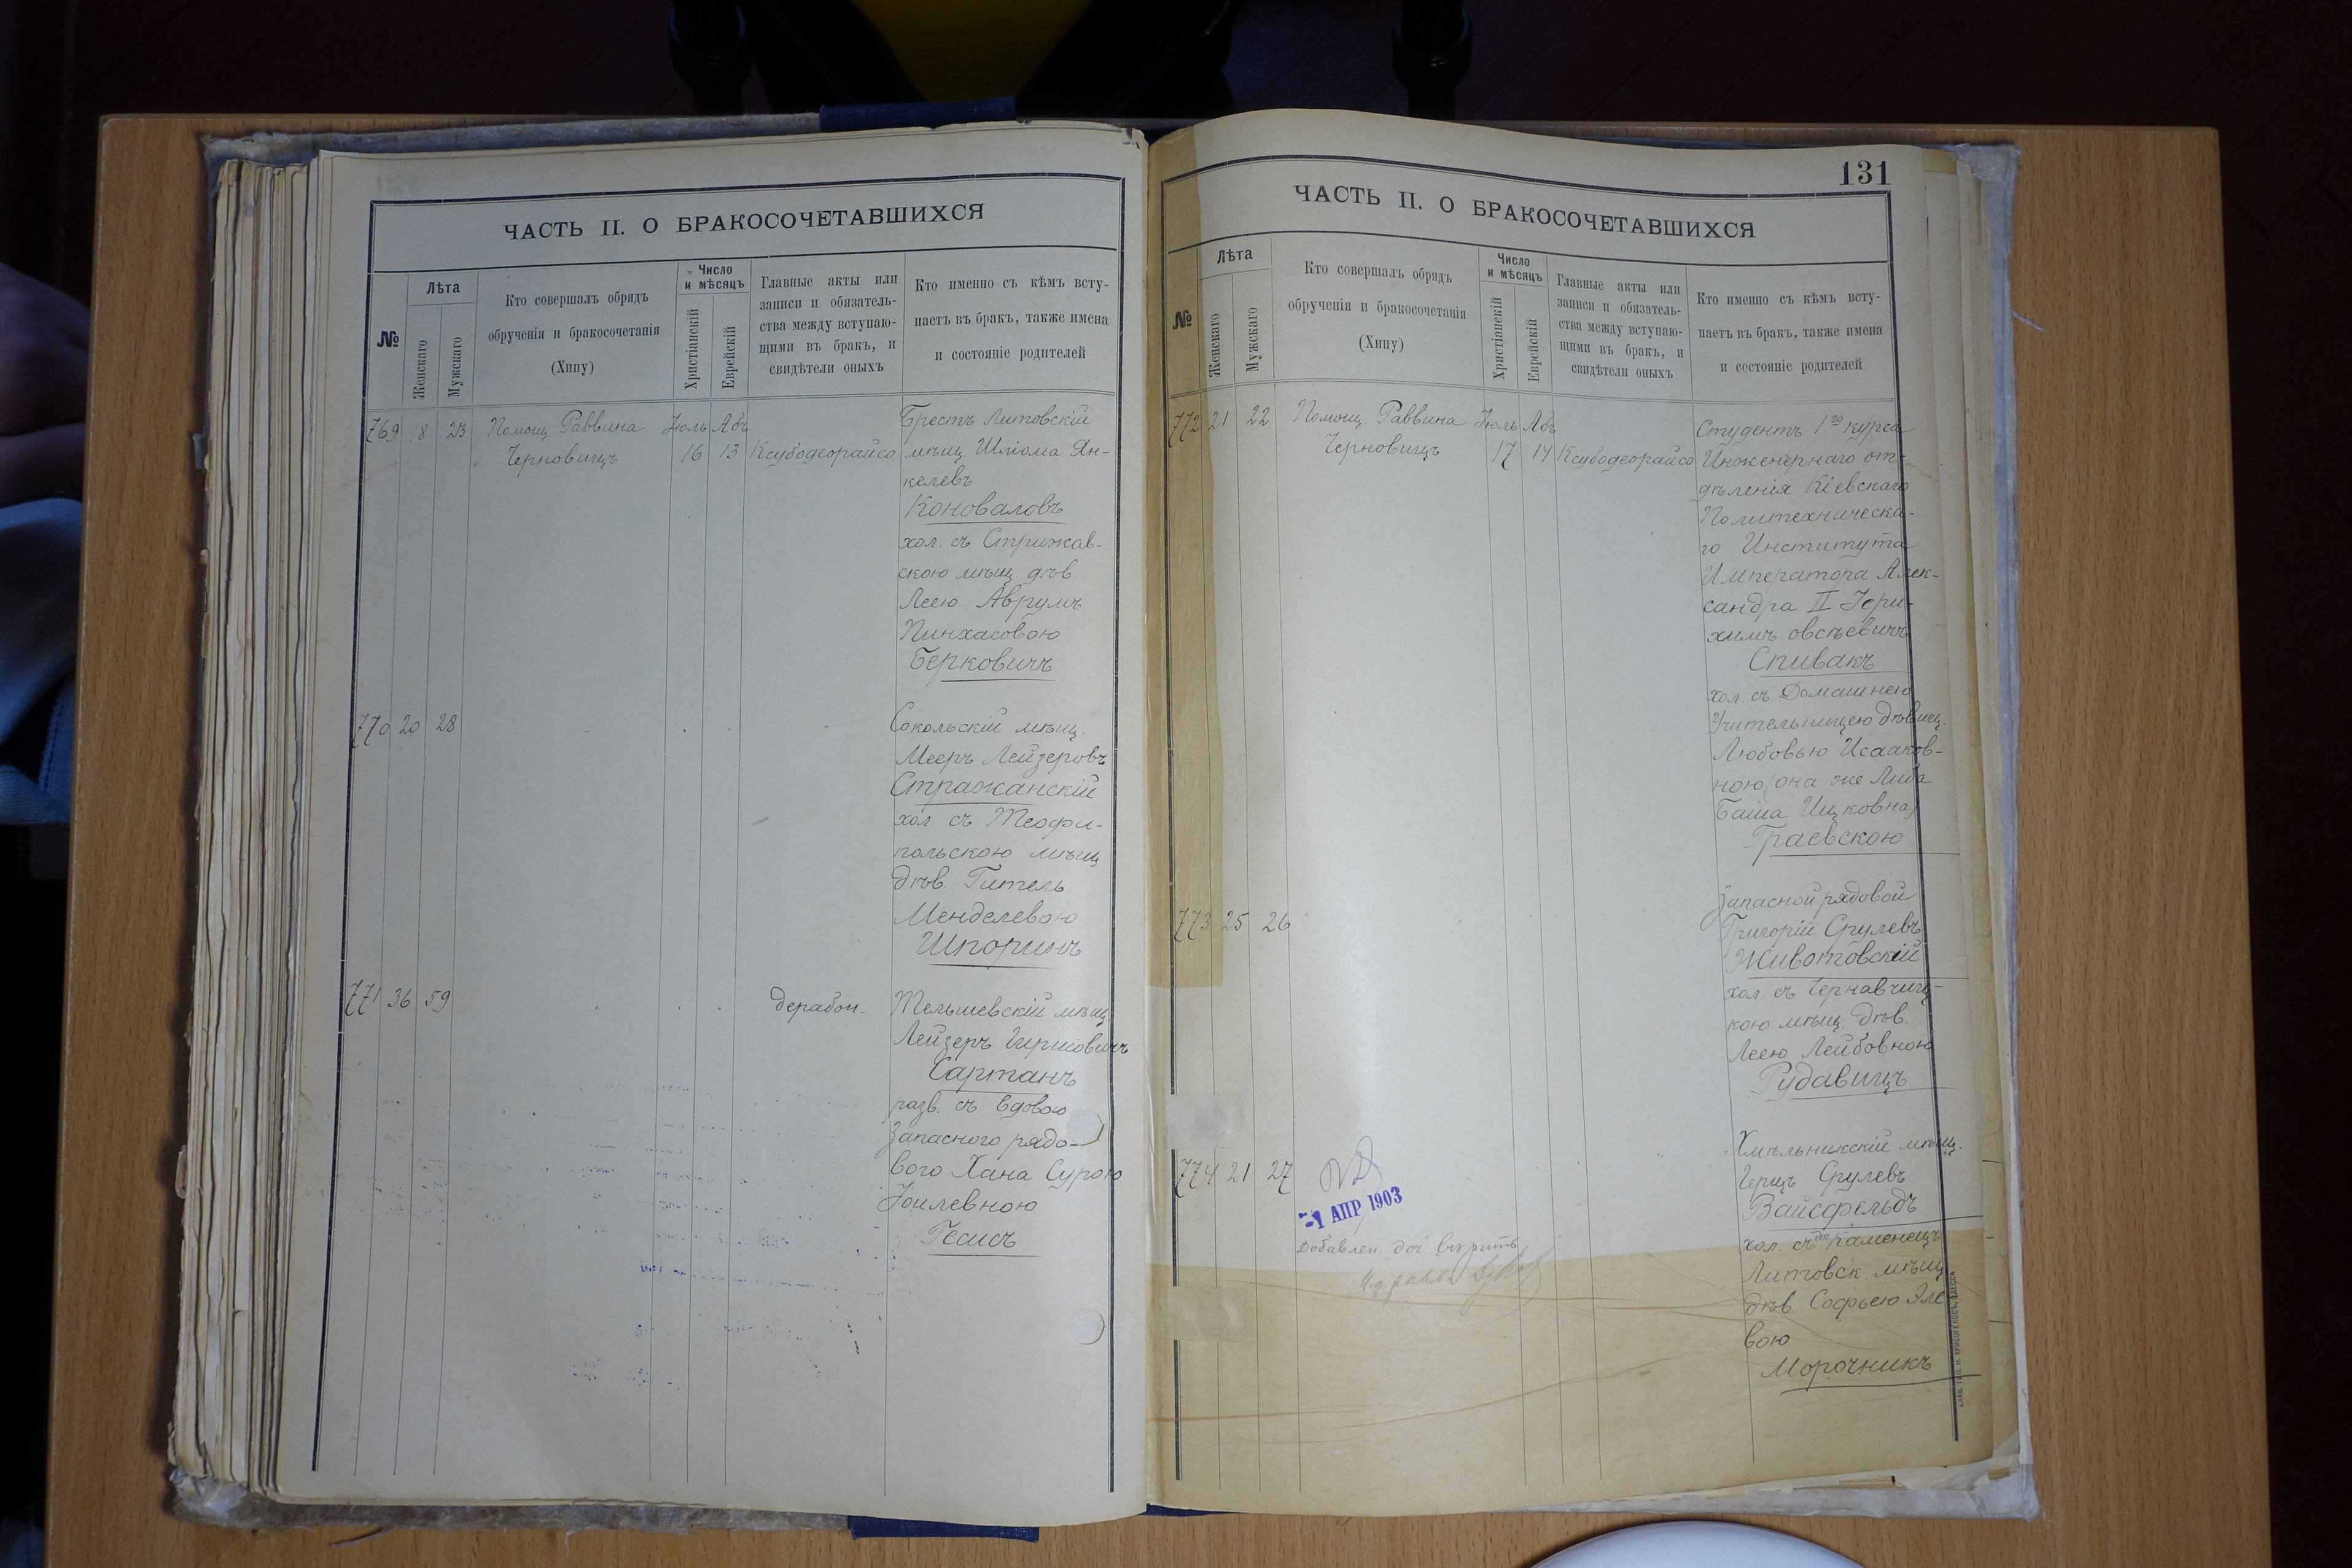 ЧАСТЬ II. О БРАКОСОЧЕТАВШИХСЯ
№
Лѣта
Женскаго
Мужскаго
Кто совершалъ обрядъ
обрученія и бракосочетанія
(Хипу)
Число
и мѣсяцъ
Христіанскій
Еврейскій
Главные акты или
записи и обязатель-
ства между вступаю-
щими въ бракъ, и
свидѣтели оныхъ
Кто именно съ кѣмъ всту-
паетъ въ бракъ, также имена
и состояніе родителей
769 18 23 Помощ. Раввина Іюль Абъ Брестъ Литовскій
Черновицъ 16 13 Ксубодеорайсо мѣщ. Шліома Ян-
келевъ
Коноваловъ
хол. съ Стрижав-
скою мѣщ. дѣв.
Леею Аврумъ
Пинхасовою
Берковичъ
770 20 28 Сокольскій мѣщ.
Мееръ Лейзеровъ
Стражанскій
хол. съ Теофи-
польскою мѣщ
дѣв. Гитель
Менделевою
Шпоринъ
771 36 59 дерабон. Тельшевскій мѣщ.
Лейзеръ Гиршовичъ
Сартанъ
разв. съ вдовою
Запасного рядо-
вого Хана Сурою
Іойлевною
Гесисъ
131
ЧАСТЬ II. О БРАКОСОЧЕТАВШИХСЯ
№
Лѣта
Женскаго
Мужскаго
Кто совершалъ обрядъ
обрученія и бракосочетанія
(Хипу)
Число
и мѣсяцъ
Христіанскій
Еврейскій
Главные акты или
записи и обязатель-
ства между вступаю-
щими въ бракъ, и
свидѣтели оныхъ
Кто именно съ кѣмъ всту-
паетъ въ бракъ, также имена
и состояніе родителей
772 21 22 Помощ. Раввина Іюль Абъ Студентъ 1го курса
Черновицъ 17 14 Ксубодеорайсо Инженернаго от-
дѣленія Кіевскаго
Политехническа-
го Института
Императора Алек-
сандра II Іери-
химъ овсѣевичъ
Спивакъ
хол. съ Домашнею
Учительницею дѣвиц.
Любовью Исааков-
ною (она же Либа
Баша Ицковна)
Граевскою
773 25 26 Запасной рядовой
Григорій Срулевъ
Животовскій
хол съ Чернавчиц-
кою мѣщ. дѣв.
Леею Лейбовною
Рудавицъ
774 21 27 Хмѣльникскій мѣщ.
Герцъ Срулевъ
Вайсфельдъ
хол. съ Каменецъ
Литовск. мѣщ
дѣв. Софьею Эле
вою
Морочникъ
-1 АПР 1903
Добавлен. вѣрить